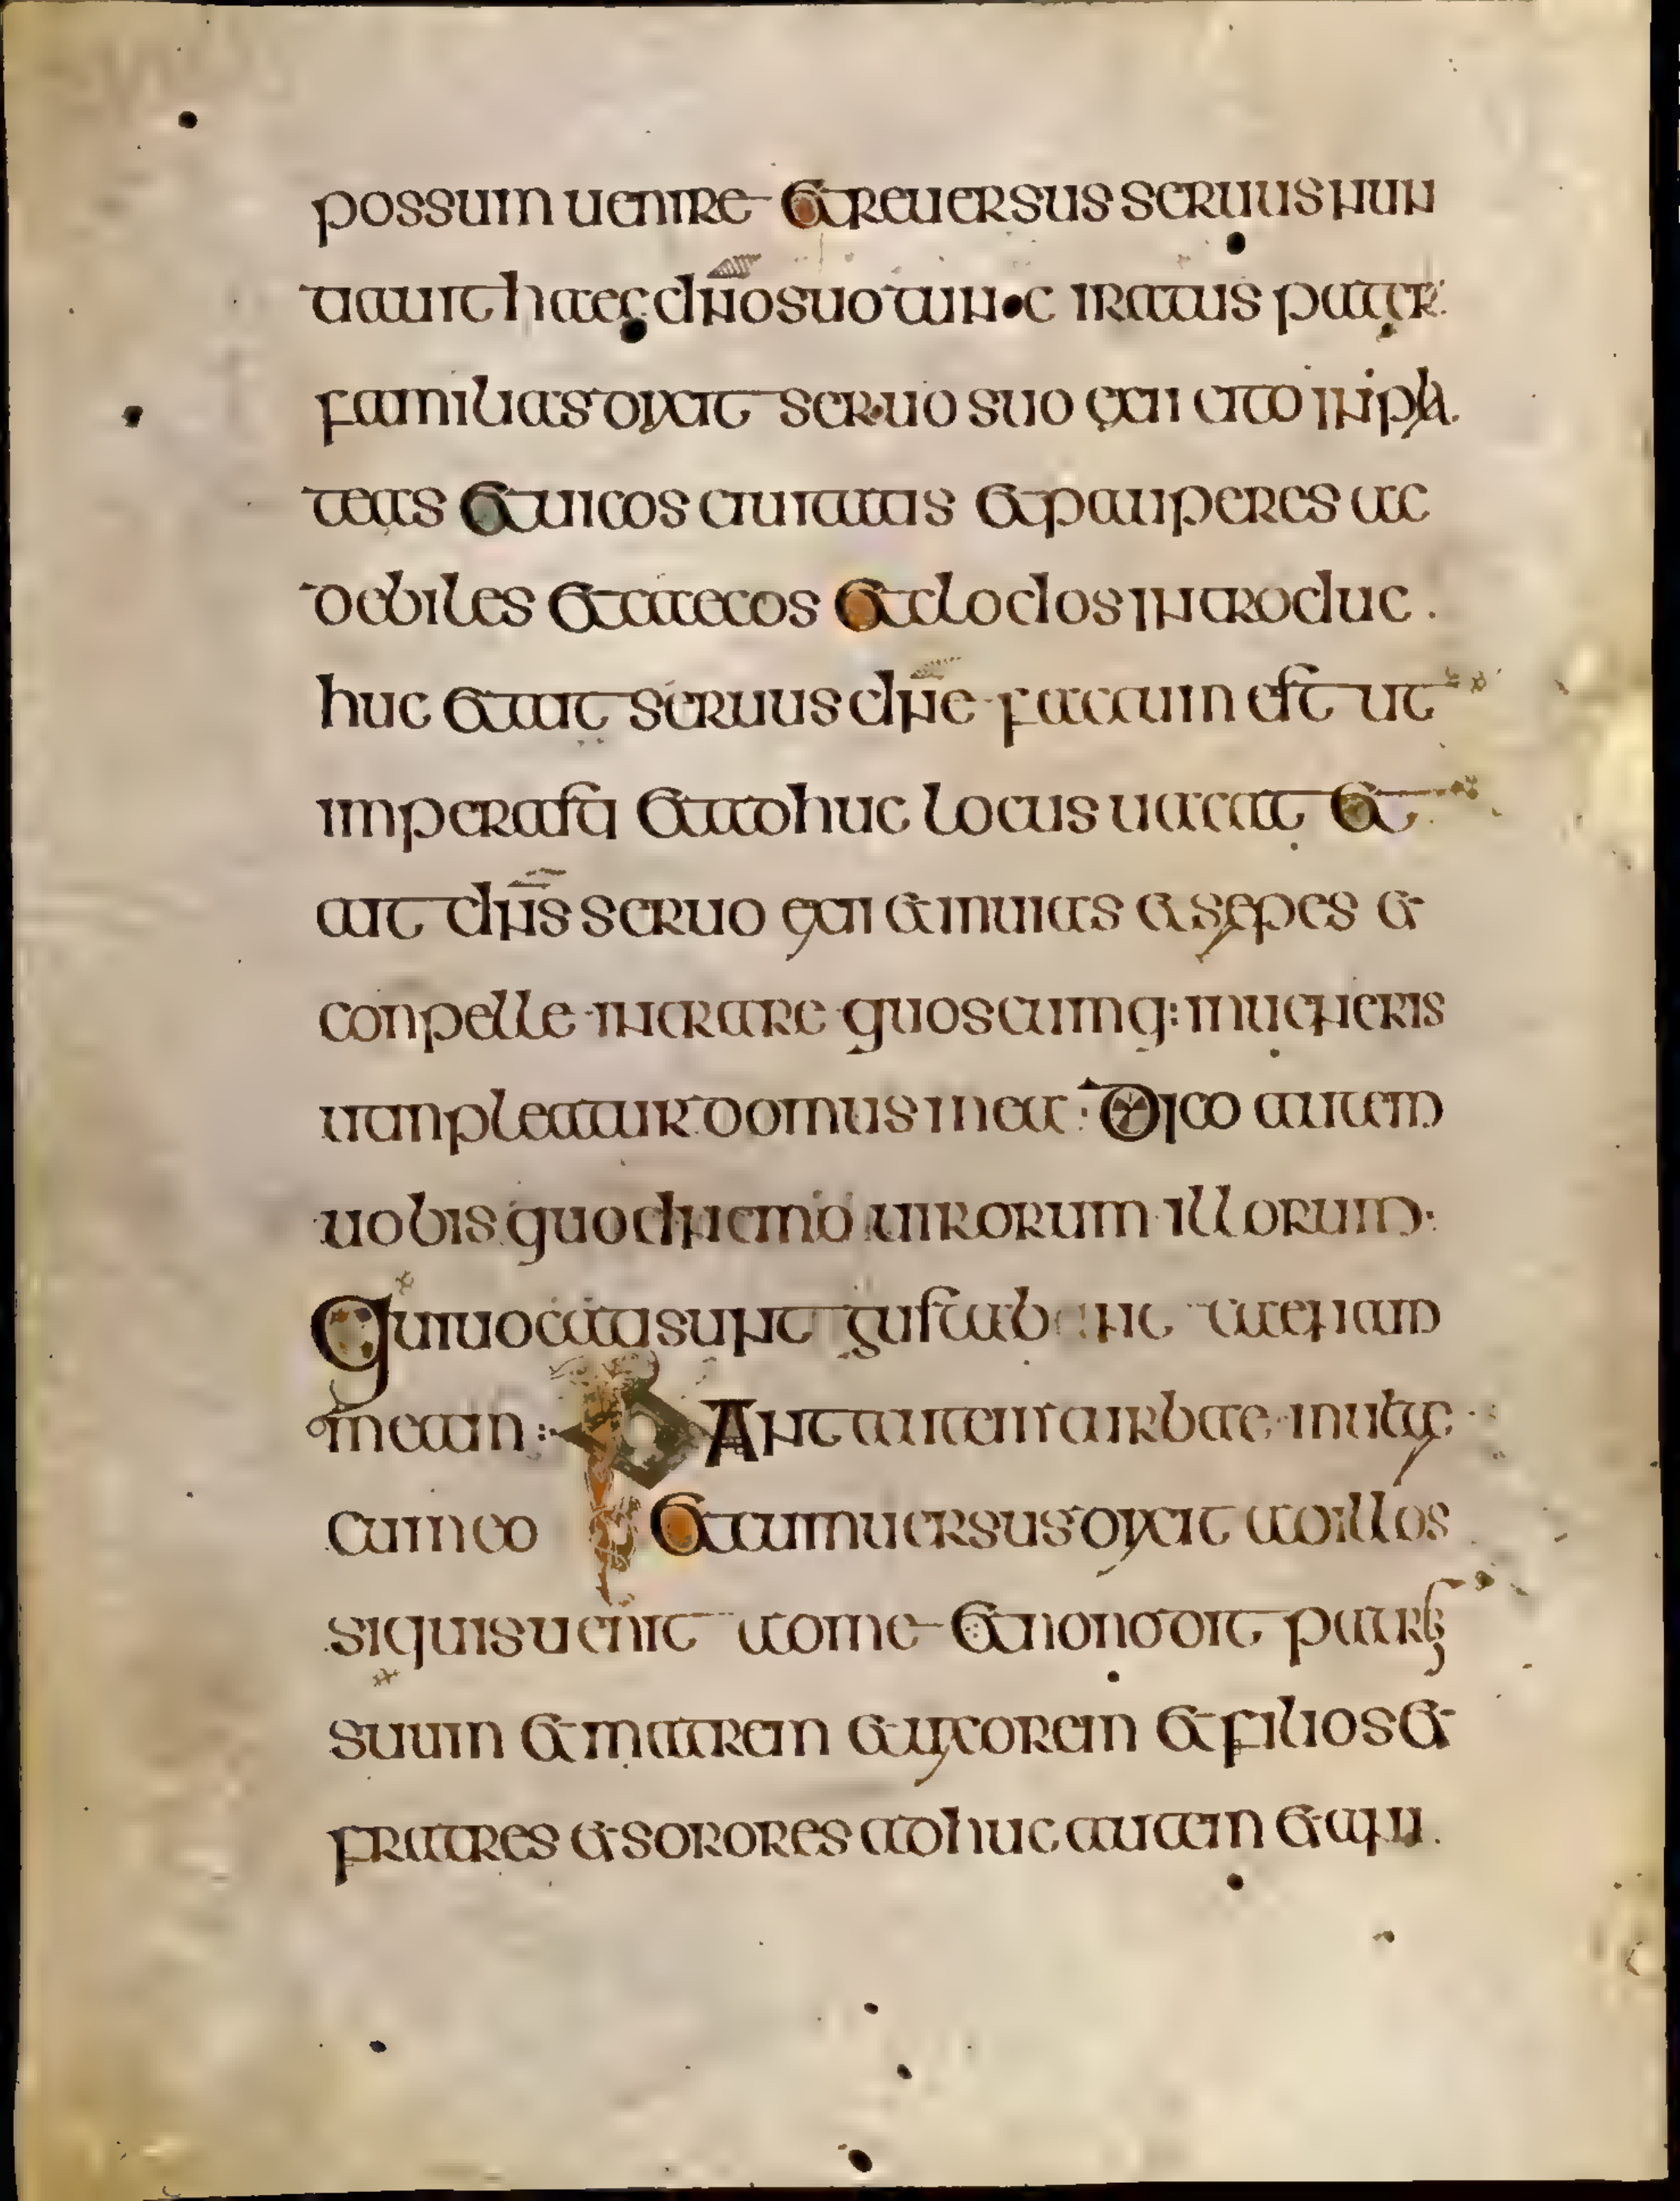 possum uenire et reuersus seruus nun
tiauit haec dño suo tunc iratus pater
familias dixit seruo suo exi cito in pla
teas et uicos ciuitatis et pauperes ac
debiles et caecos et clodos introduc
huc et ait seruus dñe factum est ut
imperasti et adhuc locus uacat et
ait dñs seruo exi et in uias et sepes et
conpelle intrare quoscumq: inueneris
ut inpleatur domus mea Dico autem
uobis quod nemo uirorum illorum
Qui uocati sunt gustabunt caenam
meam : IbAnt autem turbae multe
cum eo Et conuersus dixit ad illos
si quis uenit ad me et non odit patrem
suum et matrem et uxorem et filios et
fratres et sorores adhuc autem et ani